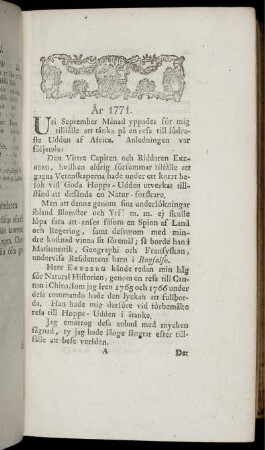 År 1771.
Uti September Månad yppades för mig
tillfälle att tänka på en resa till södra-
ste Udden af Africa. Anledningen var
följande:
Den Vittre Capiten och Riddaren Eke-
berg, hvilken aldrig försummar tillfälle att
gagna Vetenskaperna hade under ett kortt be-
sök vid Goda Hopps-Udden utverkat till-
stånd att ditsända en Natur-forskare.
Men att denne genom sina undersökningar
ibland Blomster och Yrf m. m. ej skulle
löpa fara att anses såsom en Spion af Land
och Regering, samt dessutom med min-
dre kostnad vinna sit föremål; så borde han i
Mathematik, Geographi och Fransyskan,
undervisa Residentens barn i Bayfalso.
Herr Ekeberg kände redan min håg
för Natural Historien, genom en resa till Can-
ton i China, som jag åren 1765 och 1766 under
dess commando hade den lyckan att fullbor-
da. Han hade mig derföre vid förbemälte
resa till Hopps-Udden i åtanke.
Jag emottog dess anbud med mycken
fägnad, ty jag hade länge längtat efter till-
fälle att bese verlden.
A
Det